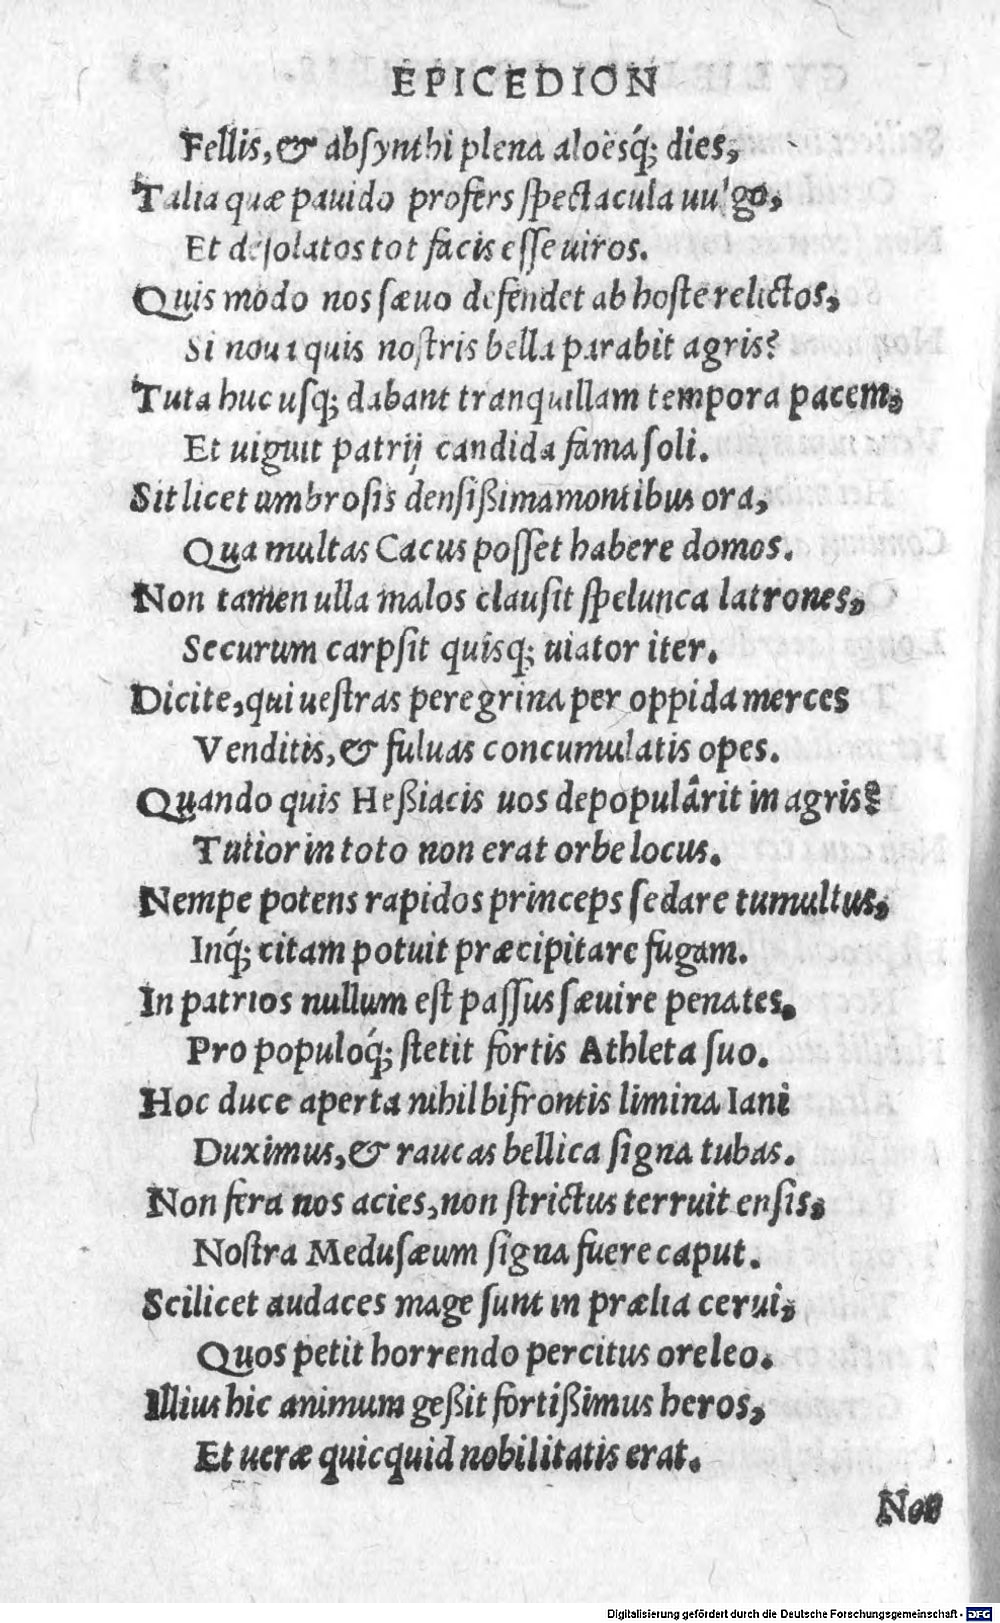 EPICEDION
Fellis, & abſynthi plena aloësq́; dies,
Talia quæ pauido profers ſpectacula uulgo,
Et deſolatos tot facis eſſe uiros.
Quis modo nos ſæuo defendet ab hoſte relictos,
Si noua quis noſtris bella parabit agris?
Tuta huc uſq; dabant tranquillam tempora pacem,
Et uiguit patrij candida fama ſoli.
Sit licet umbroſis denſißima montibus ora,
Qua multas Cacus poſſet habere domos.
Non tamen ulla malos clauſit ſpelunca latrones,
Securum carpſit quiſq; uiator iter.
Dicite, qui ueſtras peregrina per oppida merces
Venditis, & fuluas concumulatis opes.
Quando quis Heßiacis uos depopulârit in agris?
Tutior in toto non erat orbe locus.
Nempe potens rapidos princeps ſedare tumultus,
Inq́; citam potuit præcipitare fugam.
In patrios nullum eſt paſſus ſæuire penates.
Pro populoq́; ſtetit fortis Athleta ſuo.
Hoc duce aperta nihil bifrontis limina Iani
Duximus, & raucas bellica ſigna tubas.
Non fera nos acies, non ſtrictus terruit enſis,
Noſtra Meduſæum ſigna fuere caput.
Scilicet audaces mage ſunt in prælia cerui,
Quos petit horrendo percitus ore leo.
Illius hic animum geßit fortißimus heros,
Et ueræ quicquid nobilitatis erat.
Non
Digitalisierung gefördert durch die Deutsche Forschungsgemeinschaft - DFG